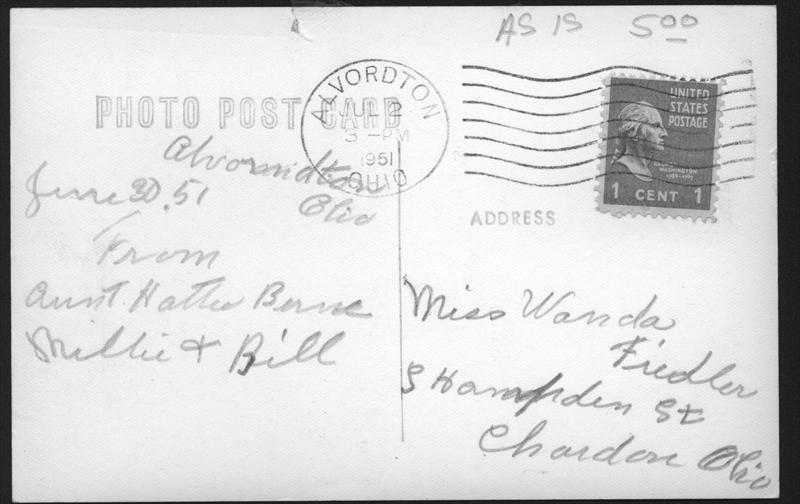 AS IS 5.00
PHOTO POST CARD
ALVORDTON
JUL 2
3 - PM
1951
OHIO
UNITED
STATES
POSTAGE
WASHINGTON
1 CENT 1
ADDRESS
Alvormdton
Ohio
June 30, 51
From
Aunt Hattie
Millie & Bill
Miss Wanda
Fiedler
S Hampden St
Chardon Ohio